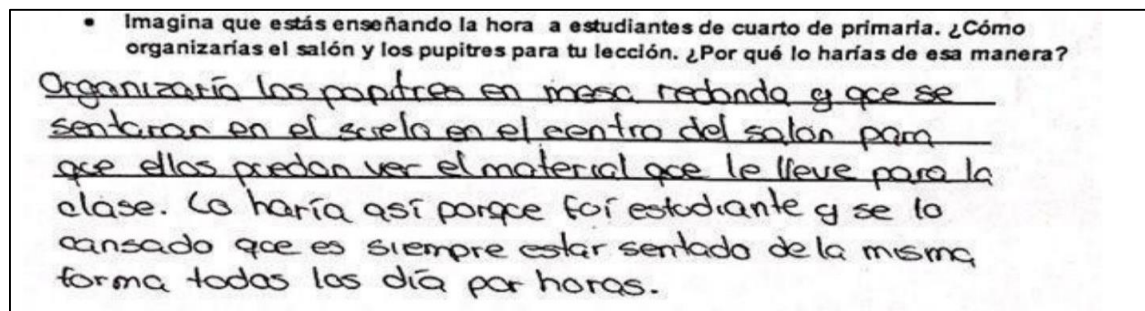 • Imagina que estás enseñando la hora a estudiantes de cuarto de primaria. ¿Cómo
organizarías el salón y los pupitres para tu lección. ¿Por qué lo harías de esa manera?
Organizaría los pupitres en mesa redonda y que se
sentaran en el suelo en el centro del salón para
que ellos puedan ver el material que le lleve para la
clase. Lo haría así porque fui estudiante y se lo
cansado que es siempre estar sentado de la misma
forma todos los día por horas.